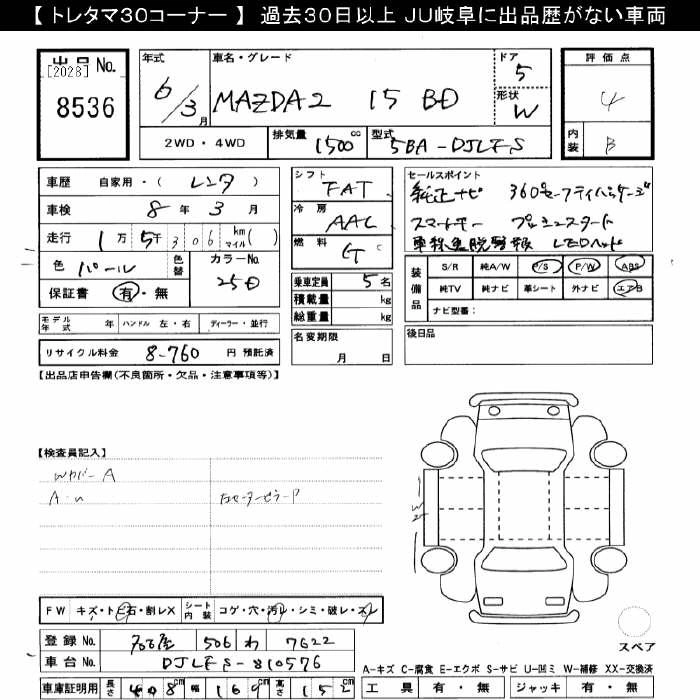 【 トレタマ30コーナー 】 過去30日以上 JU岐阜に出品歴がない車両
出品 No.
[2028]
8536
年式
6/3月
車名・グレード
MAZDA2 15 BD
ドア
5
形状
W
評価点
4
内装
B
2WD・4WD
排気量
1500cc
型式
5BA-DJLFS
車歴 自家用・( レンタ )
車検 8年 3月
走行 1万 5千 306 km マイル ( )
色 パール
色替
カラーNo.
25D
保証書 有・無
シフト
FAT
冷房
AAC
燃料
G
乗車定員 5名
積載量 kg
総重量 kg
セールスポイント
純正ナビ 360セーフティパッケージ
スマートキー プッシュスタート
車線逸脱警報 LEDヘッド
装備品
S/R 純A/W P/S P/W ABS
純TV 純ナビ 革シート 外ナビ エアB
ナビ型番:
モデル年式 年 ハンドル 左・右 ディーラー・並行
リサイクル料金 8-760 円 預託済
名変期限
月 日
後日品
【出品店申告欄(不良箇所・欠品・注意事項等)】
【検査員記入】
Wカバー A
A・U
W2
FW キズ・トビ石・割レX
シート内装 コゲ・穴・汚レ・シミ・破レ・スレ
登録 No. 名古屋 506 わ 7622
車台 No. DJLFS-810576
車庫証明用 長さ 408cm 幅 169cm 高さ 152cm
スペア
A-キズ C-腐食 E-エクボ S-サビ U-凹ミ W-補修 XX-交換済
工具 有・無 ジャッキ 有・無